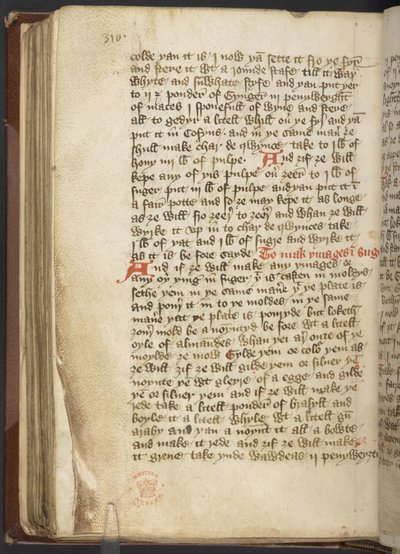 310
colde yan it is i now yā sette it fro ye fyre
and stere it wt a rownde stafe till it way
whyte and sūwhate styfe and yan put yer
to ii ʒ ponder of Gynger iii penyweyght
of maces i sponefull of wyne and stere
all to gedyr a litell whill on ye fyr and yā
put it in Cofyns and in ye same man ʒe
shull make char de qwynces take to i lb of
hony iiii lb of pulpe And ʒif ʒe will
kepe any of yis pulpe on ʒeer to i lb of
suger put iii lb of pulpe and yan put it ī
a fair potte and so ʒe may kepe it as longe
as ʒe will fro ʒeer to ʒeer and whan ʒe will
wyrke it vp in to char de qwynces take
i lb of yat and i lb of sugre and wyrke it
as it is be fore sayde To mak ymages ī sug
And if ʒe will make any ymages or
any oy yīng in suger yt is casten in moldys
sethe yem in ye same maner yt ye plate is
and pour it in to ye moldes in ye same
maner yat ye plate is pouryde but loketh
ʒour mold be a noyntyd be fore wt a litell
oyle of almaundes whan yei ar oute of ye
moylde ʒe mow Gylde yem or colour yem as
ʒe will ʒif ʒe will gilde yem or siluer yem
noynte ye wt gleyre of a egge and gilde
ye or siluer yem and if ʒe will make ye
rede take a litell ponder of brasyll and
boyle it a litell whyle wt a litell gū
araby and yan a noynt it all a bowte
and make it rede and ʒif ʒe will make
it grene take ynde wawdeas ii penyweyte